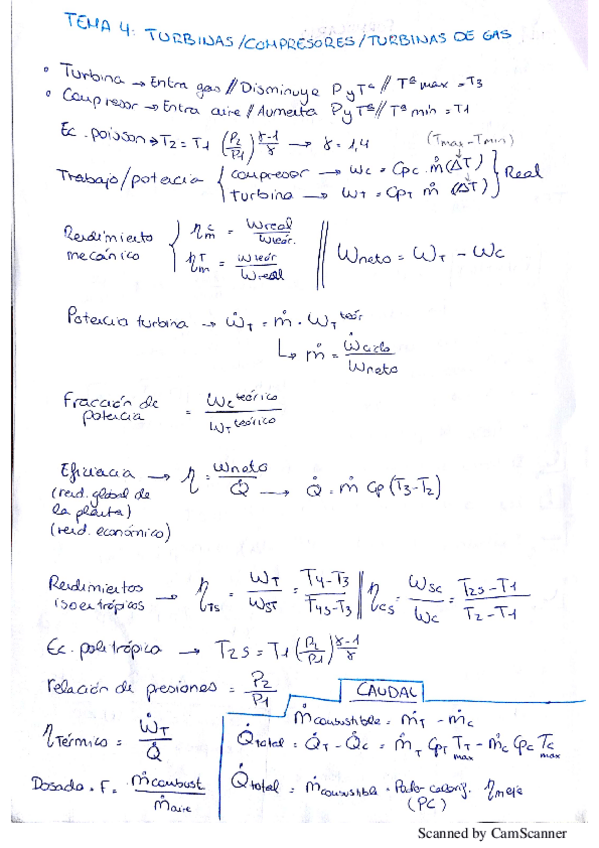 TEMA 4: TURBINAS/COMPRESORES/TURBINAS DE GAS
• Turbina → Entra gas // Disminuye P y Tª // Tª max = T3
• Compresor → Entra aire // Aumenta P y Tª // Tª min = T1
Ec. poisson → T2 = T1 (P2/P1)^(γ-1/γ) → γ = 1,4
(Tmax - Tmin)
Trabajo/potencia { compresor → Wc = Cpc ṁ (ΔT) } Real
turbina → WT = CpT ṁ (ΔT)
Rendimiento mecánico { η^c_m = Wreal/Wteór. || Wneto = WT - Wc
η^T_m = Wteór/Wreal
Potencia turbina → ẆT = ṁ · WT^teór
↳ ṁ = Ẇciclo/Wneto
Fracción de potencia = Wc^teórico/WT^teórico
Eficiencia → η = Wneto/Q̇ → Q̇ = ṁ Cp (T3-T2)
(rend. global de
la planta)
(rend. económico)
Rendimientos isoentrópicos → ηTS = WT/WST = T4-T3/T4S-T3 || ηCS = WSC/WC = T2S-T1/T2-T1
Ec. politrópica → T2S = T1 (P2/P1)^(γ-1/γ)
relación de presiones = P2/P1
CAUDAL
ṁcombustible = ṁT - ṁc
ηTérmico = ẆT/Q̇
Q̇total = Q̇T - Q̇c = ṁT CpT TT max - ṁc Cpc Tc max
Dosado · F = ṁcombust/ṁaire
Q̇total = ṁcombustible · Poder calorif. (PC)
Scanned by CamScanner